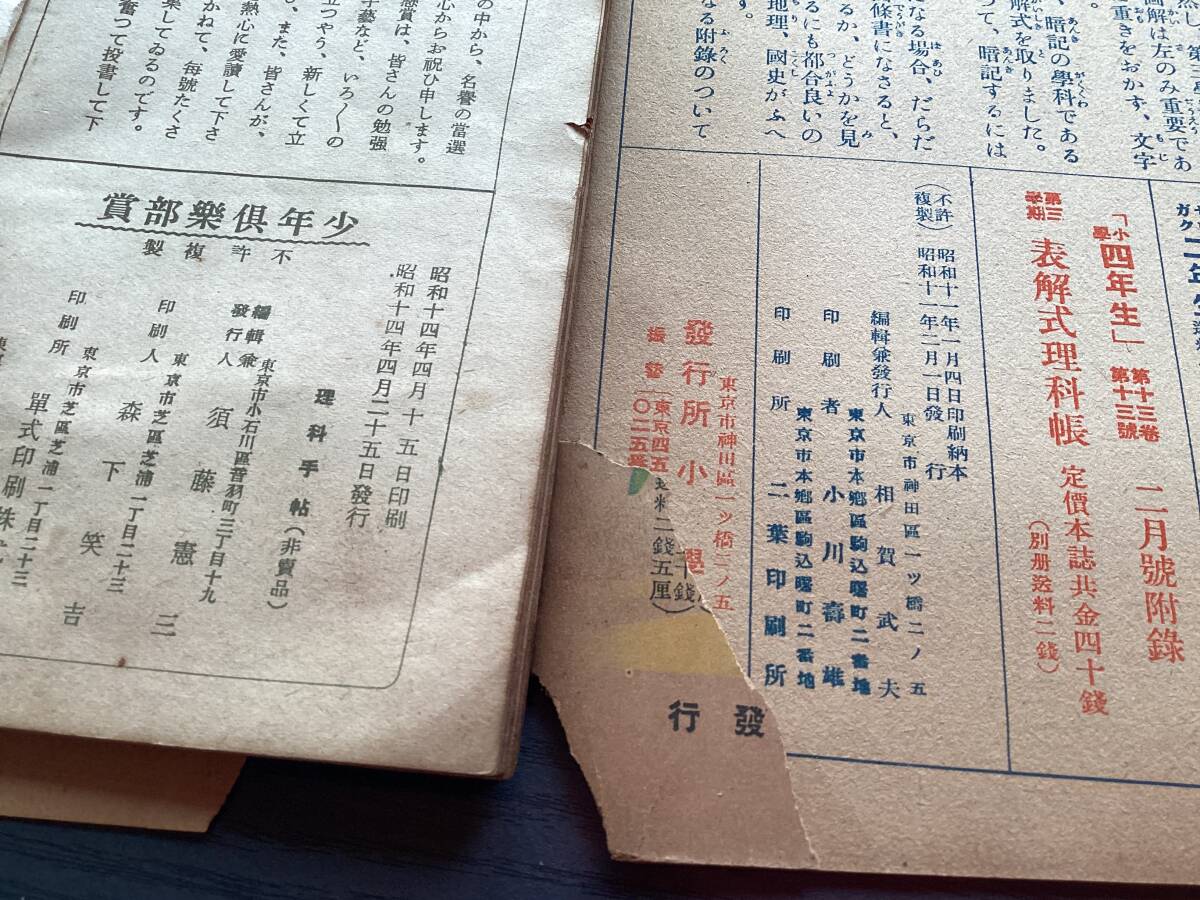 の中から、名譽の當選
心からお祝ひ申します。
懸賞は、皆さんの勉強
手藝など、いろ〱の
立つやう、新しくて立
、また、皆さんが、
熱心に愛讀して下さ
かねて、毎號たくさ
集してゐるのです。
奮つて投書して下
少年倶樂部賞
不許複製
昭和十四年四月十五日印刷
昭和十四年四月二十五日發行
理科手帖(非賣品)
東京市小石川區音羽町三丁目十九
編輯兼發行人 須藤憲三
東京市芝區芝浦一丁目二十三
印刷人 森下笑吉
東京市芝區芝浦一丁目二十三
印刷所 單式印刷株式
圖解は左のみ重要であ
重きをおかず、文字
、暗記の學科である
解式を取りました。
つて、暗記するには
になる場合、だらだ
條書になさると、
るか、どうかを見
るにも都合良いの
地理、國史がふへ
なる附錄のついて
す。
「小學四年生」 第十三卷 第十三號 二月號附錄
第三學期 表解式理科帳 定價本誌共金四十錢
(別册送料二錢)
(不許複製) 昭和十一年一月四日印刷納本
昭和十一年二月一日發行
東京市神田區一ツ橋二ノ五
編輯兼發行人 相賀武夫
東京市本鄕區駒込曙町二番地
印刷者 小川壽雄
東京市本鄕區駒込曙町二番地
印刷所 二葉印刷所
東京市神田區一ツ橋二ノ五
發行所 小學
振替東京四五
二錢五厘)
發行